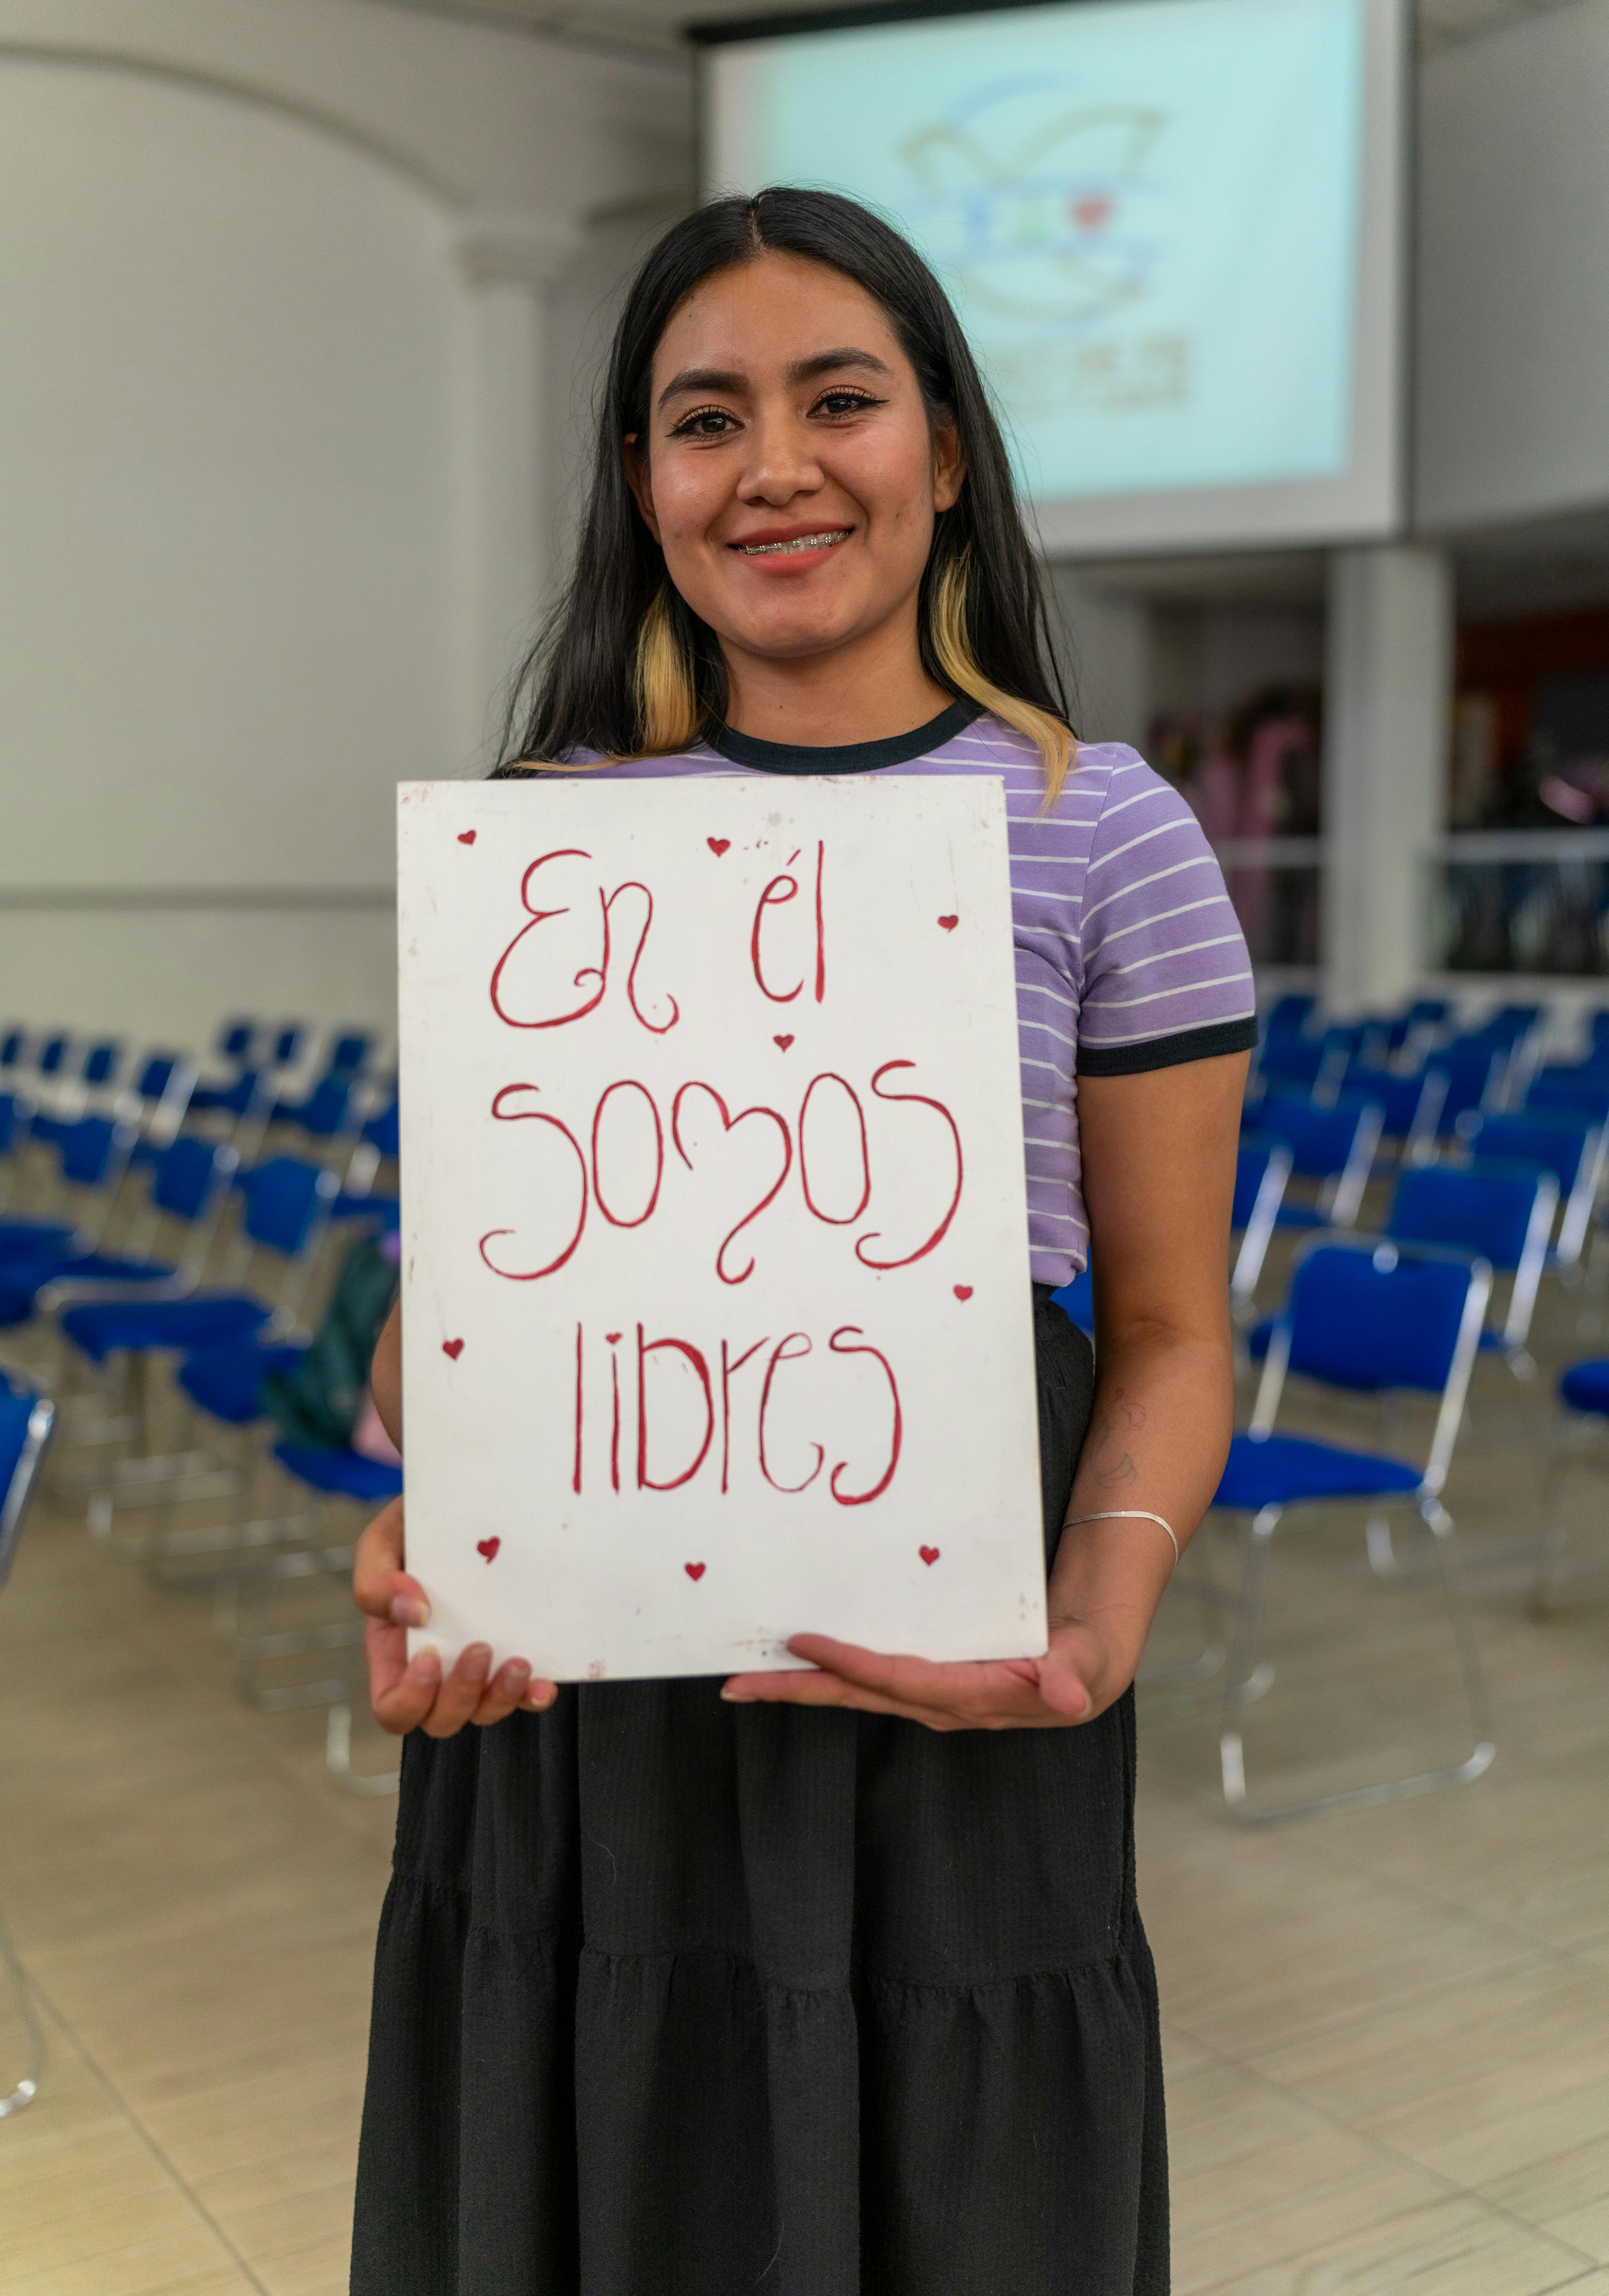 En él
somos
libres